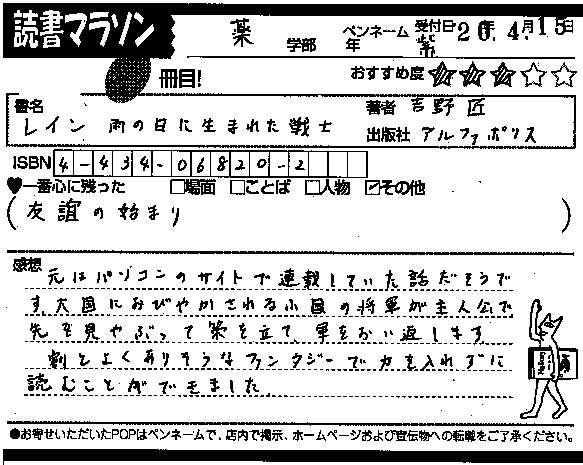 読書マラソン
薬 学部 年 ペンネーム 紫 受付日 20年4月15日
冊目! おすすめ度 ★★★☆☆
書名 レイン 雨の日に生まれた戦士
著者 吉野 匠
出版社 アルファポリス
ISBN 4-434-06820-2
♥一番心に残った □場面 □ことば □人物 ☑その他
(友誼の始まり)
感想
元はパソコンのサイトで連載していた話だそうで
す。大国におびやかされる小国の将軍が主人公で
先を見やぶって策を立て、軍をおい返します
割とよくありそうなファンタジーで力を入れずに
読むことができました。
●お寄せいただいたPOPはペンネームで、店内で掲示、ホームページおよび宣伝物への転載をご了承ください。